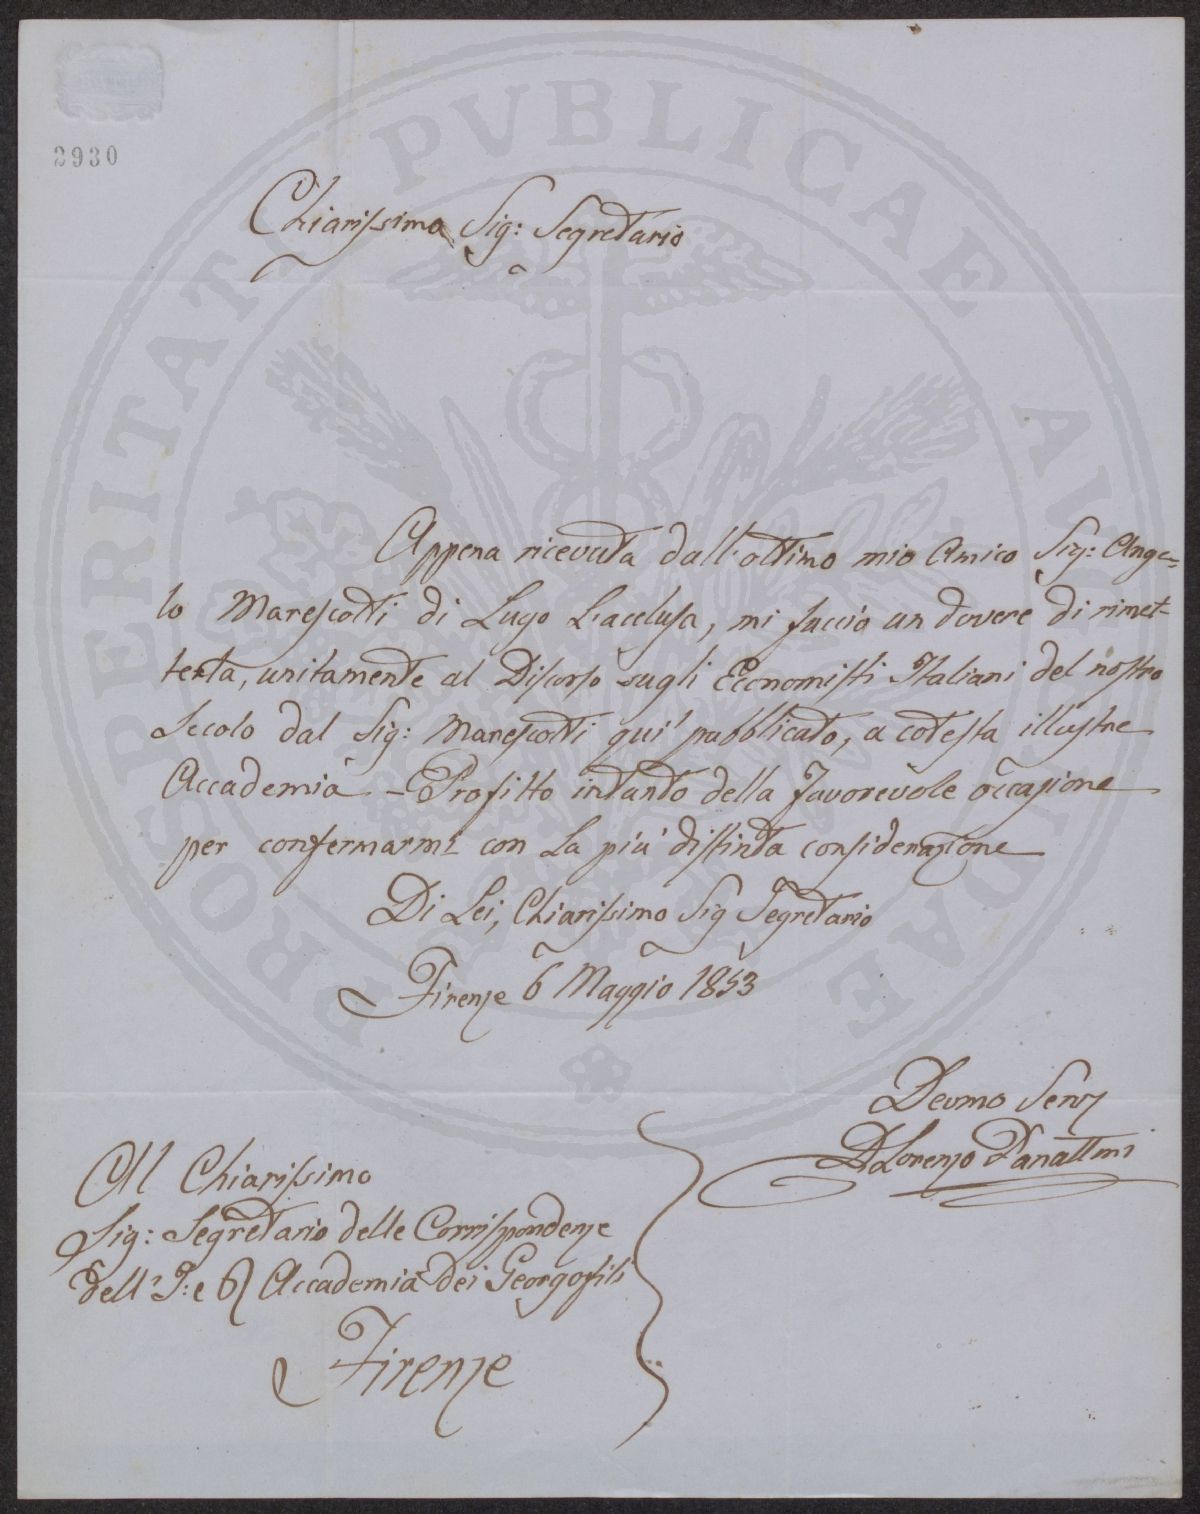 2930
Chiarissimo Sig: Segretario
Appena ricevuta dall'ottimo mio Amico Sig: Ange=
lo Marescotti di Lugo L'acclusa, mi faccio un dovere di rimet-
terla, unitamente al Discorso sugli Economisti Italiani del nostro
Secolo dal Sig: Marescotti quì pubblicato, a cotesta illustre
Accademia – Profitto intanto della favorevole occasione
per confermarmi con La più distinta considerazione
Di Lei, Chiarissimo Sig Segretario
Firenze 6 Maggio 1853
Devmo Serv
D Lorenzo Panattoni
Al Chiarissimo
Sig: Segretario delle Corrispondenze
dell' I: e R Accademia dei Georgofili
Firenze
PROSPERITATI PVBLICAE AVGENDAE